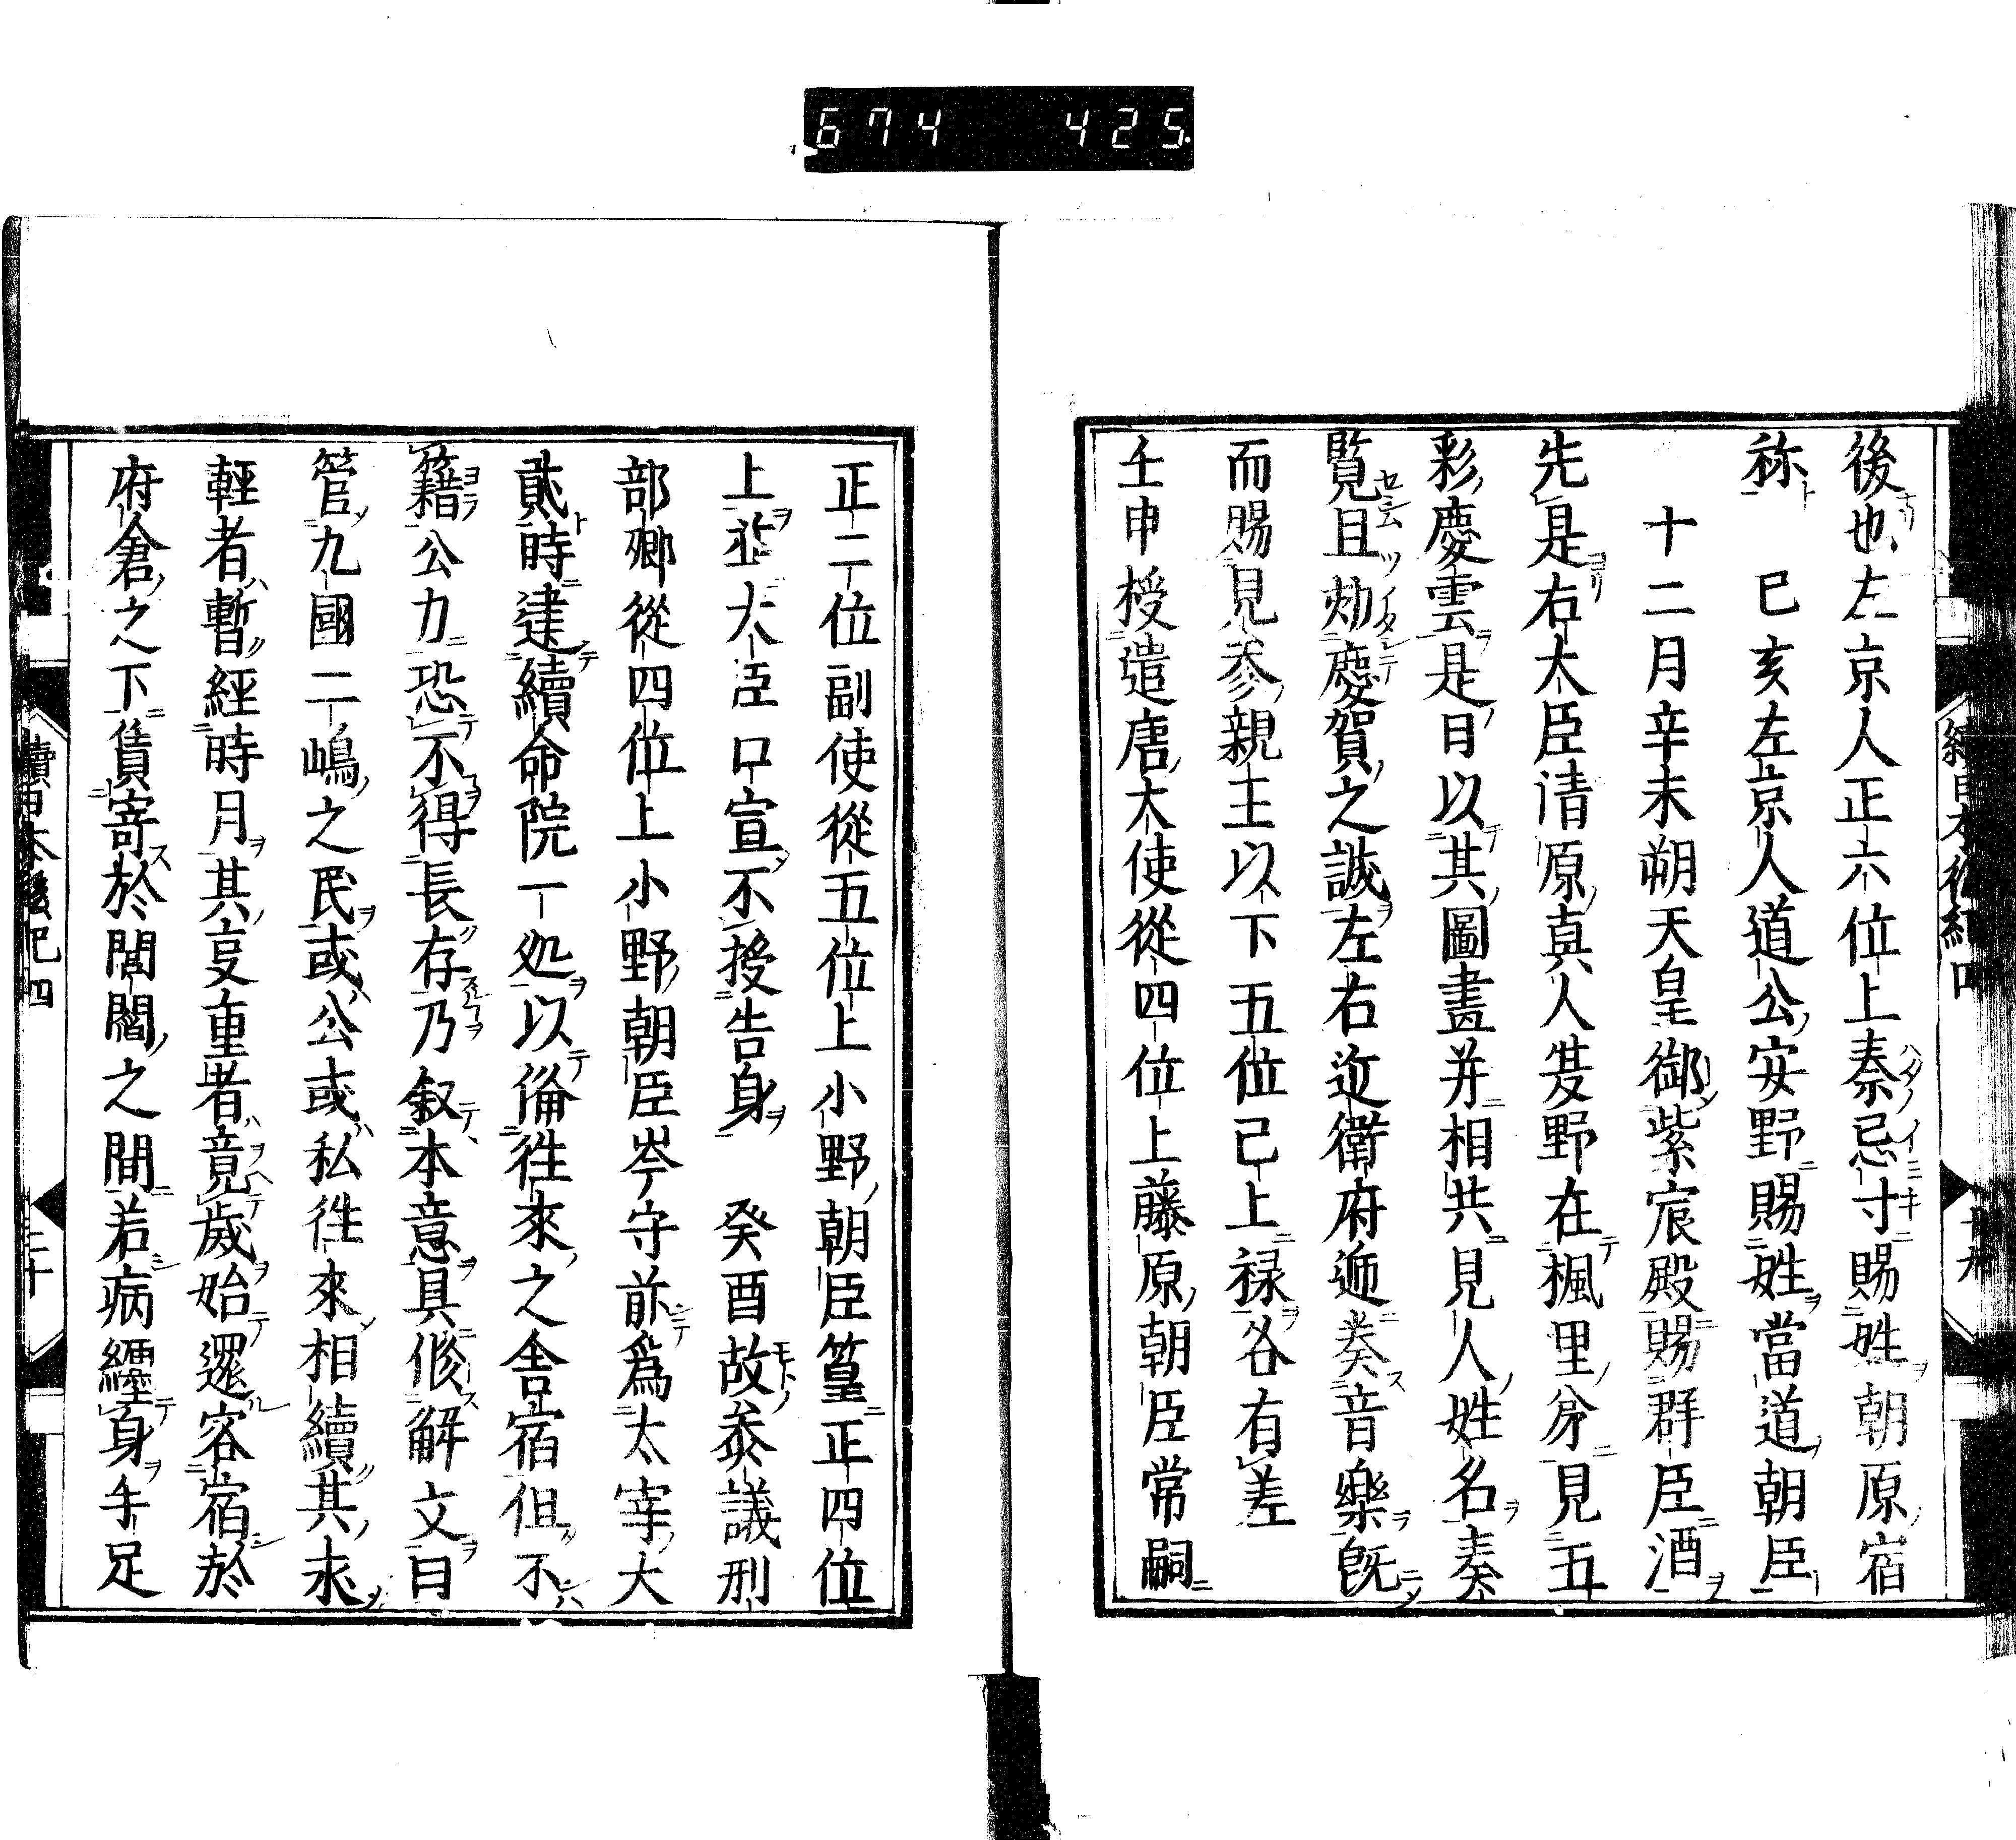 674 425
續日本後紀四 十九
後也左京人正六位上秦忌寸賜姓朝原宿
祢 已亥左京人道公安野賜姓當道朝臣
十二月辛未朔天皇御紫宸殿賜群臣酒
先是右大臣清原真人夏野在楓里第見五
彩慶雲是日以其圖畫并相共見人姓名奏
覧且効慶賀之誠左右近衛府逓奏音樂既
而賜見参親王以下五位已上禄各有差
壬申授遣唐大使從四位上藤原朝臣常嗣
正二位副使從五位上小野朝臣篁正四位
上並大臣口宣不授告身 癸酉故叅議刑
部卿從四位上小野朝臣岑守前為太宰大
貳時建續命院一処以備徃來之舎宿但不
籍公力恐不得長存乃叙本意具修解文曰
管九國二嶋之民或公或私徃來相續其求
輕者暫經時月其㐮重者竟歳始還客宿於
府倉之下賃寄於閭閻之間若病纒身手足
續日本後紀四 二十